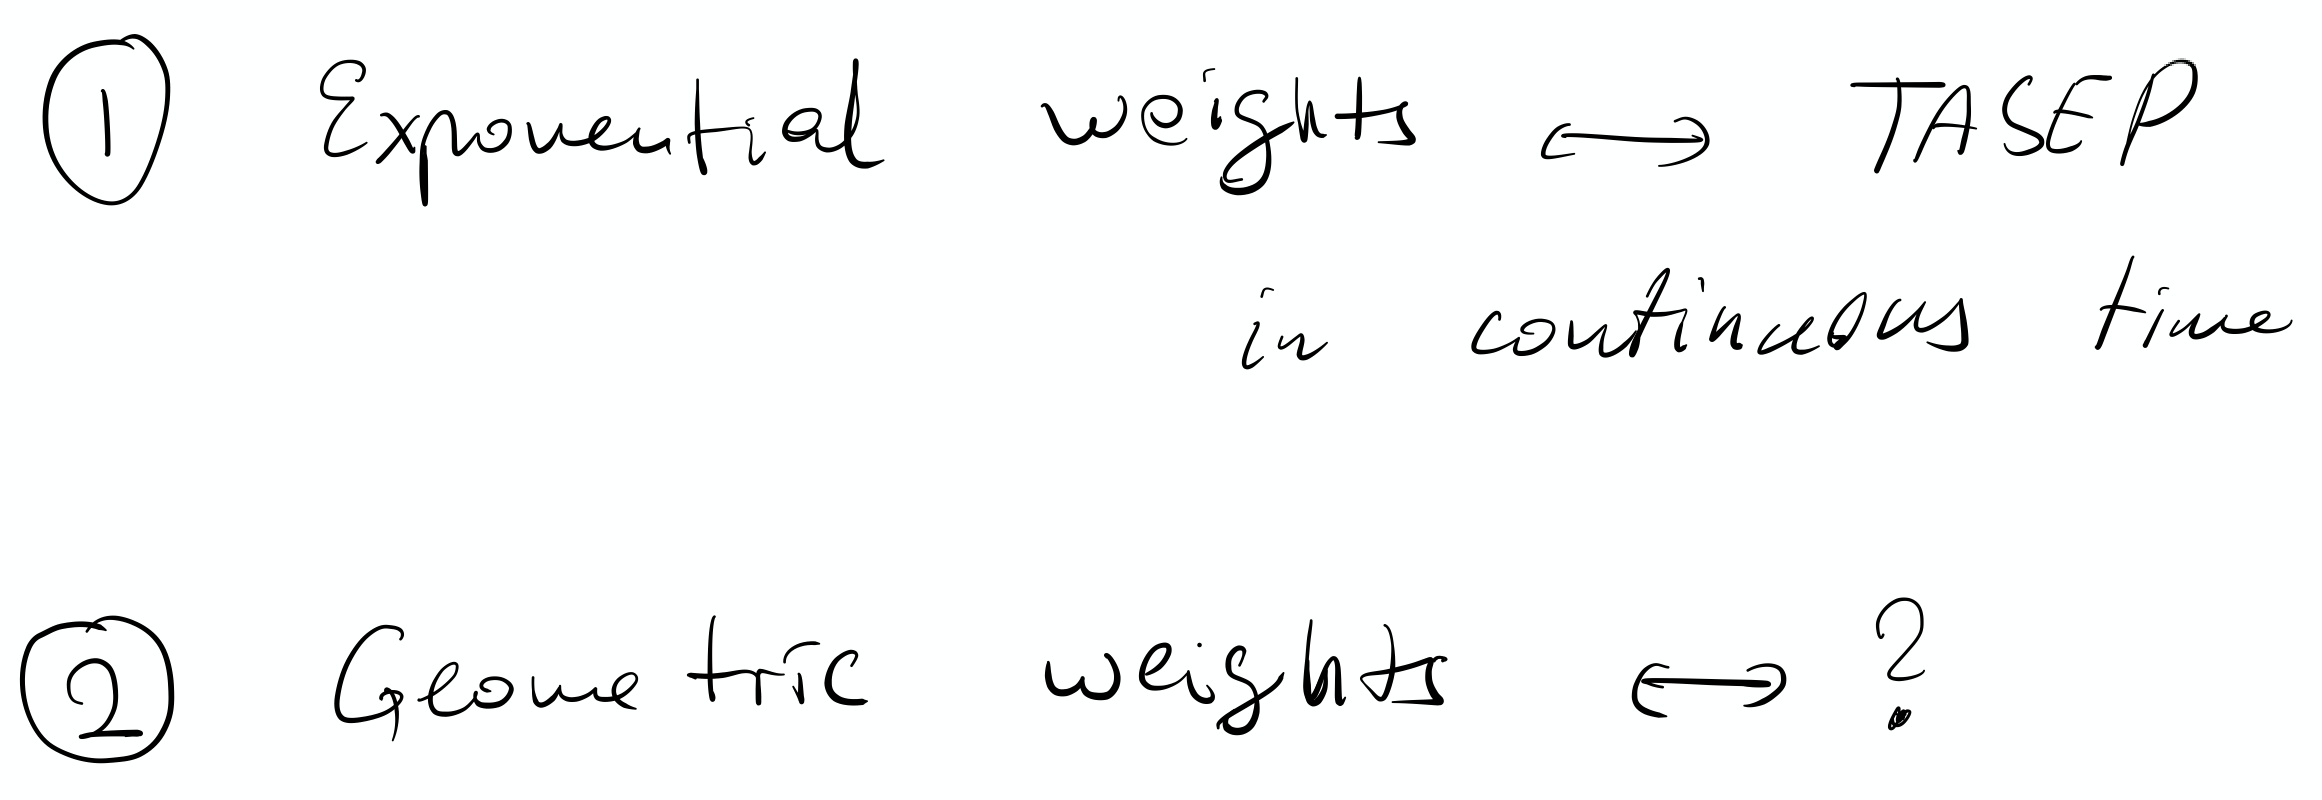 ① Exponential weights ⟷ TASEP
in continuous time
② Geometric weights ⟷ ?